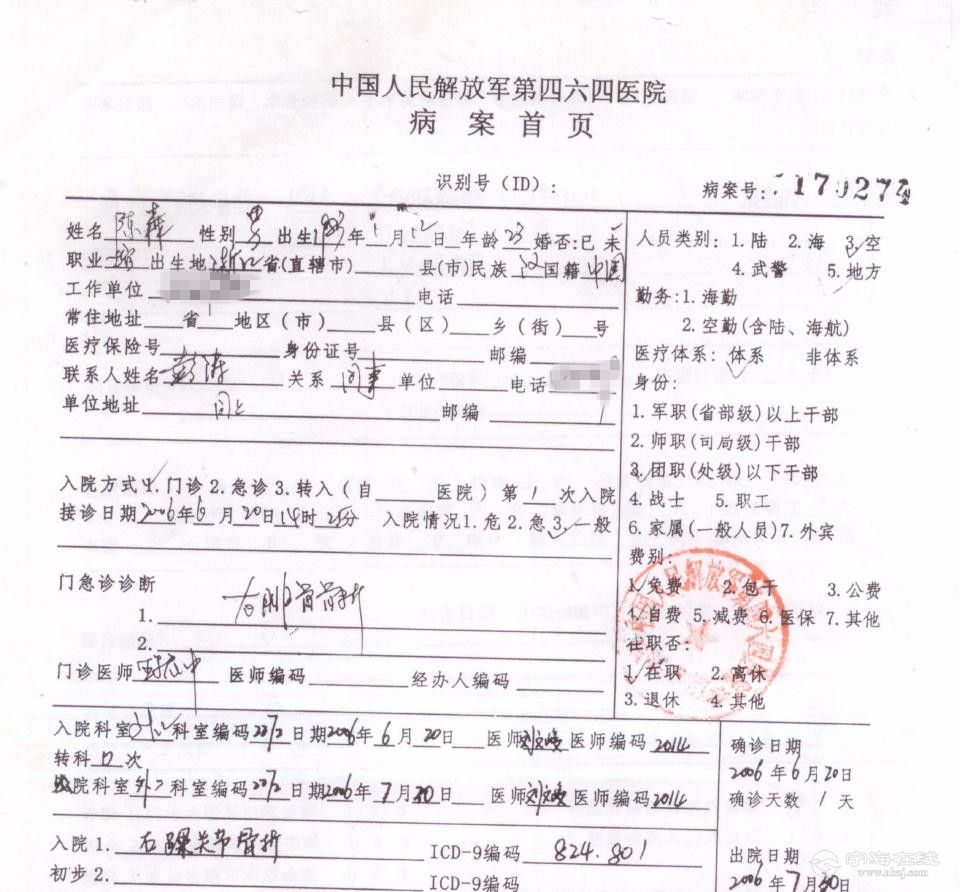 中国人民解放军第四六四医院
病案首页
识别号（ID）：
病案号：170274
姓名 陈 性别 男 出生1983年1月12日 年龄23 婚否:已 未
职业 出生地 浙江省(直辖市) 县(市)民族 汉 国籍 中国
工作单位 电话
常住地址 省 地区(市) 县(区) 乡(街) 号
医疗保险号 身份证号 邮编
联系人姓名 彭涛 关系 同事 单位 电话
单位地址 同上 邮编
人员类别：1.陆 2.海 3.空
4.武警 5.地方
勤务:1.海勤
2.空勤(含陆、海航)
医疗体系：体系 非体系
身份：
1.军职(省部级)以上干部
2.师职(司局级)干部
3.团职(处级)以下干部
4.战士 5.职工
6.家属(一般人员)7.外宾
费别：
1.免费 2.包干 3.公费
4.自费 5.减费 6.医保 7.其他
在职否：
1.在职 2.离休
3.退休 4.其他
入院方式 1.门诊 2.急诊 3.转入（自 医院）第1次入院
接诊日期2006年6月20日14时25分 入院情况1.危2.急3.一般
门急诊诊断
1. 右腓骨骨折
2.
门诊医师 医师编码 经办人编码
入院科室 外二 科室编码 2272 日期2006年6月20日 医师 医师编码 2014
转科 0 次
科室 外二 科室编码 2272 日期2006年7月30日 医师 医师编码 2014
确诊日期
2006年6月20日
确诊天数 1 天
入院 1. 右踝关节骨折 ICD-9编码 824.801
初步 2. ICD-9编码
出院日期
2006年7月30日
宁海在线
www.nhzj.com